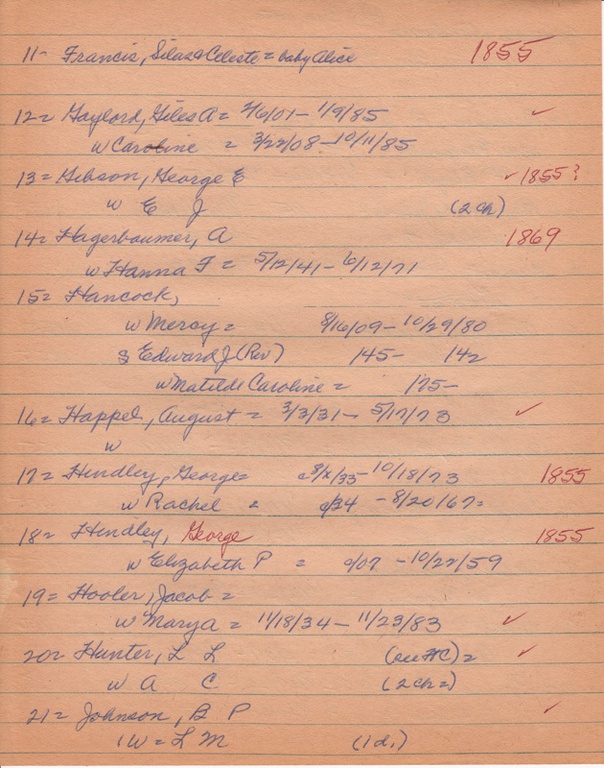 11- Francis, Silas & Celeste = baby Alice 1855
12= Gaylord, Giles A = 2/6/01 - 1/9/85 ✓
w Caroline = 3/22/08 - 10/11/85
13= Gibson, George E ✓ 1855?
w E J (2 ch)
14= Hagerbaumer, A 1869
w Hanna F = 5/12/41 - 6/12/71
15= Hancock,
w Mercy = 8/16/09 - 10/29/80
s Edward J (Rev) 145- 142
w Matilde Caroline = 175-
16= Happel, August = 3/3/31 - 5/17/73 ✓
w
17= Hindley, George= 8/x/33 - 10/18/73 1855
w Rachel = c/34 - 8/20/67=
18= Hindley, George 1855
w Elizabeth P = c/07 - 10/22/59
19= Hooler, Jacob =
w Mary A = 11/18/34 - 11/23/83 ✓
20= Hunter, L L (see HC) = ✓
w A C (2 ch=)
21= Johnson, B P ✓
1w = L M (1 d.)